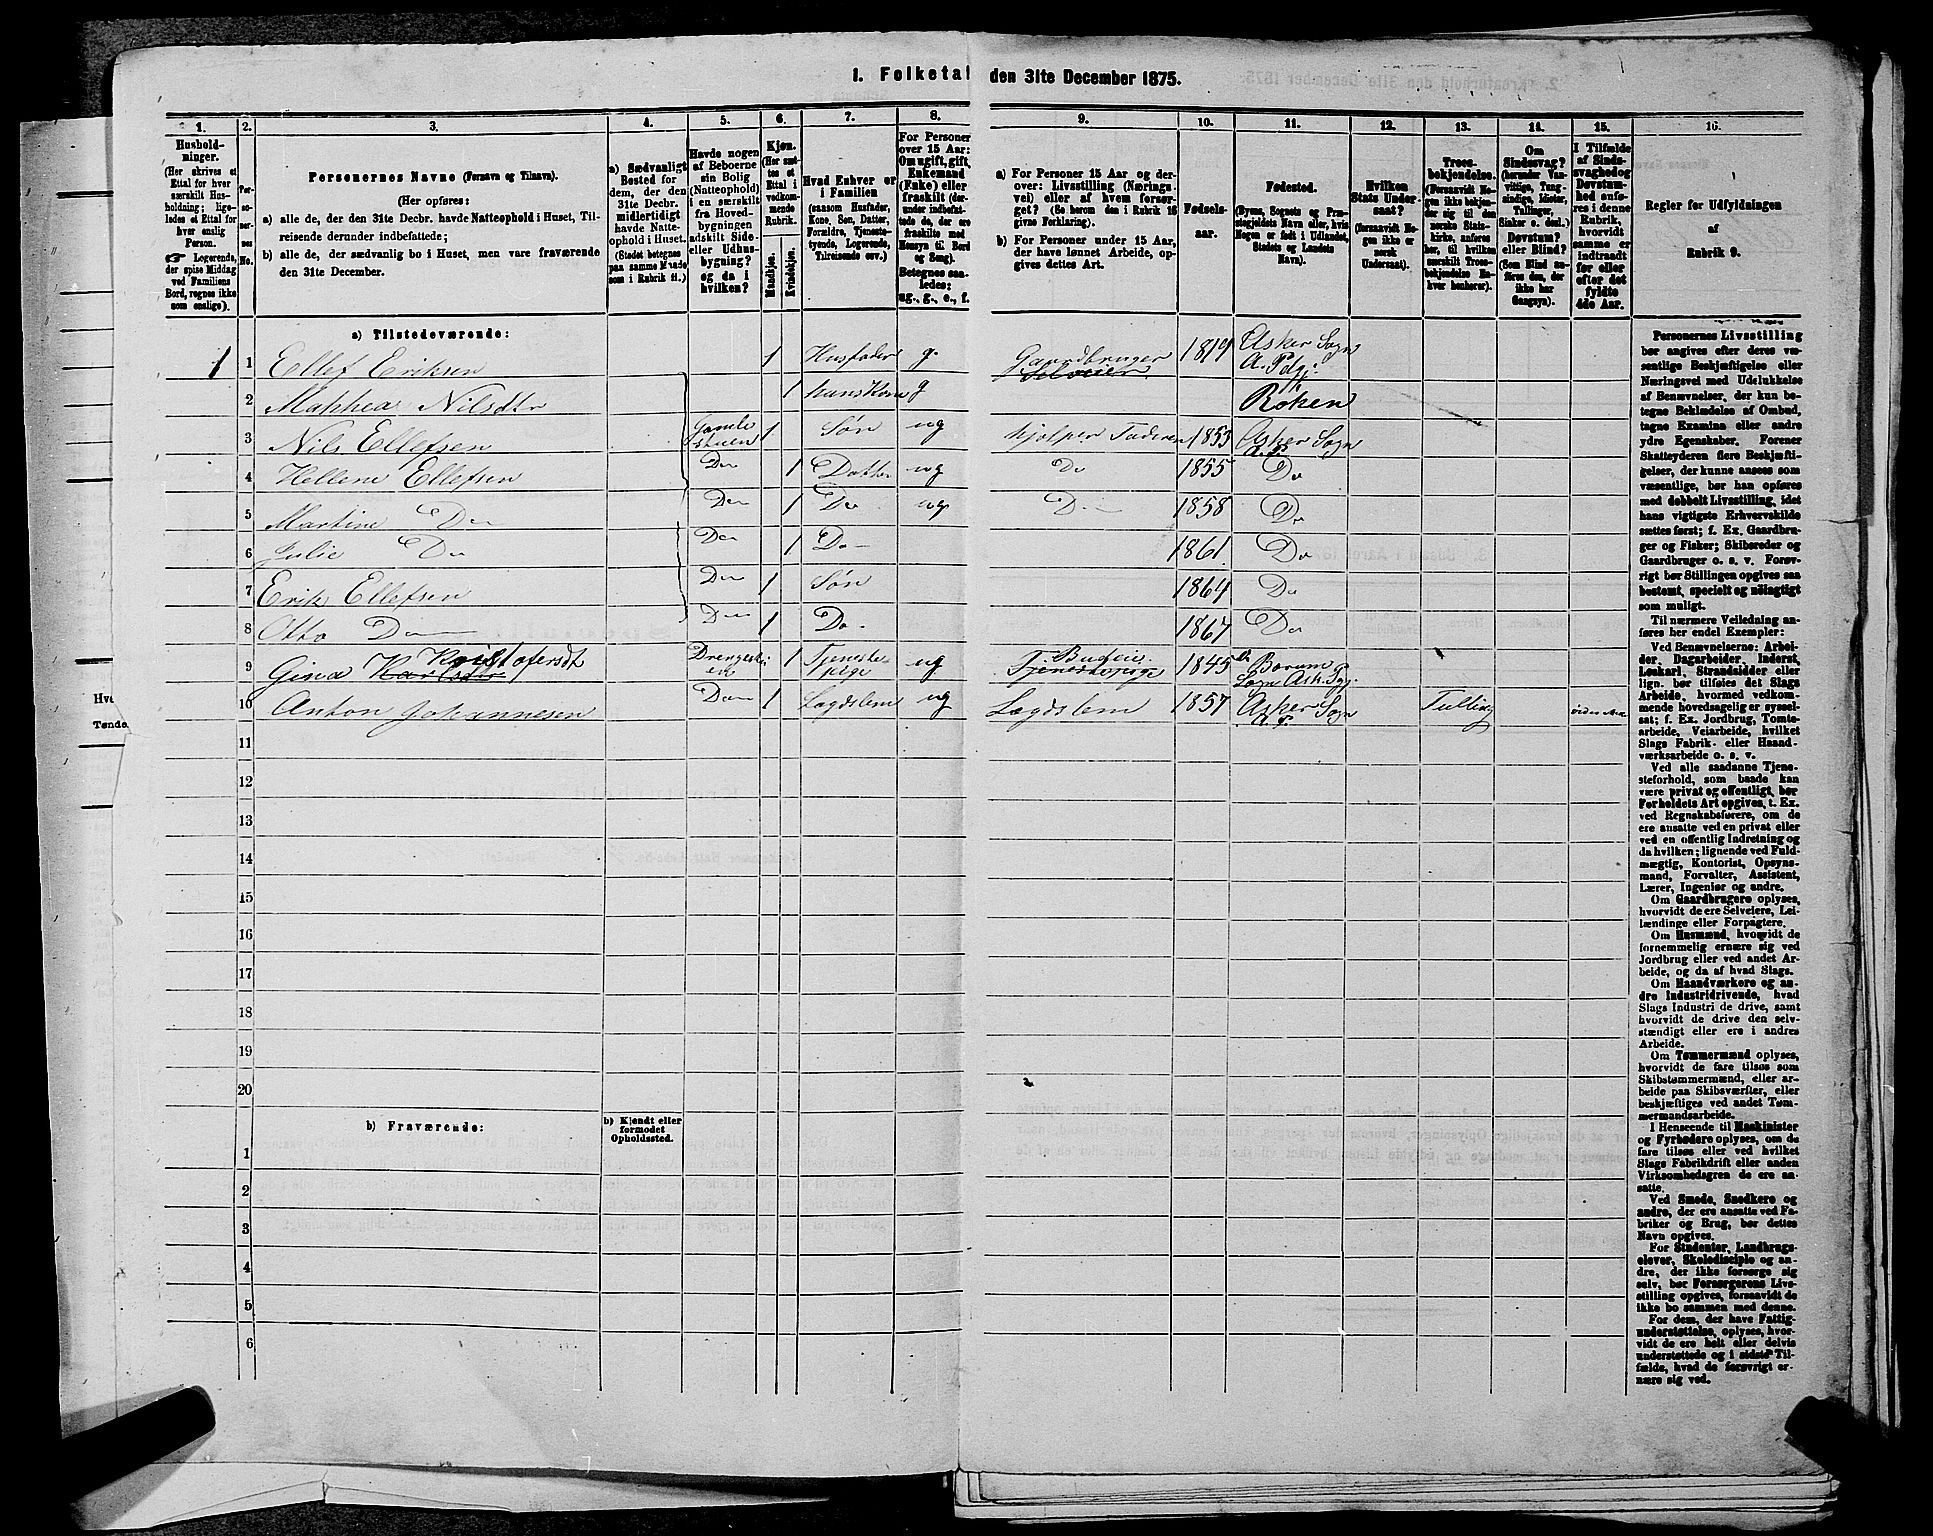 1. Folketal den 31te December 1875.
1. 2. 3. 4. 5. 6. 7. 8. 9. 10. 11. 12. 13. 14. 15. 16.
Hushold-
ninger.
(Her skrives et
Ettal for hver
særskilt Hus-
holdning; lige-
ledes et Ettal for
hver enslig
Person.
☞ Logerende,
der spise Middag
ved Familiens
Bord, regnes ikke
som enslige).
Per-
so-
ner-
nes
No.
Personernes Navne (Fornavn og Tilnavn).
(Her opføres:
a) alle de, der den 31te Decbr. havde Natteophold i Huset, Til-
reisende derunder indbefattede;
b) alle de, der sædvanlig bo i Huset, men vare fraværende
den 31te December.
a) Sædvanligt
Bosted for
dem, der den
31te Decbr.
midlertidigt
havde Natte-
ophold i Huset.
(Stedet betegnes
paa samme Maade
som i Rubrik 11.)
Havde nogen
af Beboerne
sin Bolig
(Natteophold)
i en særskilt
fra Hoved-
bygningen
adskilt Side-
eller Udhus-
bygning?
og da i
hvilken?
Kjøn.
(Her sæt-
tes et
Ettal i
vedkom-
mende
Rubrik.
Mandkjøn.
Kvindekjøn.
Hvad Enhver er
i Familien
(saasom Husfader,
Kone, Søn, Datter,
Forældre, Tjeneste-
tyende, Logerende,
Tilreisende osv.)
For Personer
over 15 Aar:
Om ugift, gift,
Enkemand
(Enke) eller
fraskilt (der-
under indbefat-
tede de, der ere
fraskilte med
Hensyn til Bord
og Seng).
Betegnes saa-
ledes:
ug., g., e., f.
a) For Personer 15 Aar og der-
over: Livsstilling (Nærings-
vei) eller af hvem forsør-
get? (Se herom den i Rubrik 16
givne Forklaring).
b) For Personer under 15 Aar,
der have lønnet Arbeide, op-
gives dettes Art.
Fødsels-
aar.
Fødested.
(Byens, Sognets og Præ-
stegjeldets Navn eller, hvis
Nogen er født i Udlandet,
Stedets og Landets
Navn).
Hvilken
Stats Under-
saat?
(forsaavidt No-
gen ikke er
norsk
Undersaat).
Troes-
bekjendelse.
(Forsaavidt No-
gen ikke bekjen-
der sig til den
norske Stats-
kirke, anføres
her, til hvilken
særskilt Troes-
bekjendelse En-
hver henhører).
Om
Sindssvag?
(herunder Van-
vittige, Tung-
sindige, Idioter,
Tullinger,
Sinker o. desl.)
Døvstum?
eller Blind?
(Som Blind an-
føres den, der
ikke har
Gangsyn).
I Tilfælde
af Sinds-
svaghed og
Døvstum-
hed anfø-
res i denne
Rubrik,
hvorvidt
samme er
indtraadt
før eller
efter det
fyldte
4de Aar.
Regler for Udfyldningen
af
Rubrik 9.
a) Tilstedeværende:
1 1 Ellef Eriksen 1 Husfader g. Gaardbruger Selveier 1819 Asker Sogn A. Pdgj.
2 Mathea Nilsdtr 1 hans Kone g Røken
3 Nils Ellefsen Gamle stuen 1. Søn ug hjelper Faderen 1853 Asker Sogn A. P.
4 Hellene Ellefsen Do 1 Datter ug Do 1855 Do
5 Martine Do Do 1 Do ug Do 1858 Do
6 Julie Do Do 1 Do 1861 Do
7 Erik Ellefsen Do 1 Søn 1864 Do
8 Otto Do Do 1 Do 1867 Do
9 Gina Karlsdtr Kristofersdt 1 Tjeneste-pige ug Tjenestepige Budeie 1845 Bærum Sogn Ask. Pgj.
10 Anton Johannesen Do 1 Lægdslem ug Lægdslem 1857 Asker Sogn A. P. Tulling
11
12
13
14
15
16
17
18
19
20
b) Fraværende:
b) Kjendt eller
formodet
Opholdssted.
1
2
3
4
5
6
Personernes Livsstilling
bør angives efter deres væ-
sentlige Beskjæftigelse eller
Næringsvei med Udelukkelse
af Benævnelser, der kun be-
tegne Beklædelse af Ombud,
tagne Examina eller andre
ydre Egenskaber. Forener
Skatteyderen flere Beskjæfti-
gelser, der kunne ansees som
væsentlige, bør han opføres
med dobbelt Livsstilling, idet
hans vigtigste Erhvervskilde
sættes først; f. Ex. Gaardbru-
ger og Fisker; Skibsreder og
Gaardbruger o. s. v. Forøv-
rigt bør Stillingen opgives saa
bestemt, specielt og nøiagtigt
som muligt.
Til nærmere Veiledning an-
føres her endel Exempler:
Ved Benævnelserne: Arbei-
der, Dagarbeider, Inderst,
Løskarl, Strandsidder eller
lign. bør tilføies det Slags
Arbeide, hvormed vedkom-
mende hovedsagelig er syssel-
sat; f. Ex. Jordbrug, Tomte-
arbeide, Veiarbeide, hvilket
Slags Fabrik- eller Haand-
værksarbeide o. s. v.
Ved alle saadanne Tjene-
steforhold, som baade kan
være privat og offentligt, bør
Forholdets Art opgives, t. Ex.
ved Regnskabsførere, om de
ere ansatte ved en privat eller
ved en offentlig Indretning og
da hvilken; lignende ved Fuld-
mægtig, Kontorist, Opsyns-
mand, Forvalter, Assistent,
Lærer, Ingeniør og andre.
Om Gaardbrugere oplyses,
hvorvidt de ere Selveiere, Lei-
lændinge eller Forpagtere.
Om Husmænd, hvorvidt de
fornemmelig ernære sig ved
Jordbrug eller ved andet Ar-
beide, og da af hvad Slags.
Om Haandværkere og an-
dre Industridrivende, hvad
Slags Industri de drive, samt
hvorvidt de drive den selv-
stændigt eller ere i andres
Arbeide.
Om Tømmermænd oplyses,
hvorvidt de fare tilsøs som
Skibstømmermænd, eller ar-
beide paa Skibsværfter, eller
beskjæftiges ved andet Tøm-
mermandsarbeide.
I Henseende til Maskinister
og Fyrbødere oplyses, om de
fare tilsøs eller ved hvilket
Slags Fabrikdrift eller anden
Virksomhedsgren de ere an-
satte.
Ved Smede, Snedkere og
andre, der ere ansatte ved Fa-
briker og Brug, bør dettes
Navn opgives.
For Studenter, Landbrugs-
elever, Skoledisciple og an-
dre, der ikke forsørge sig
selv, bør Forsørgerens Livs-
stilling opgives, forsaavidt de
ikke bo sammen med denne.
For dem, der have Fattig-
understøttelse, oplyses, hvor-
vidt de ere helt eller delvis
understøttede og i sidste Til-
fælde, hvad de forøvrigt er-
nære sig ved.